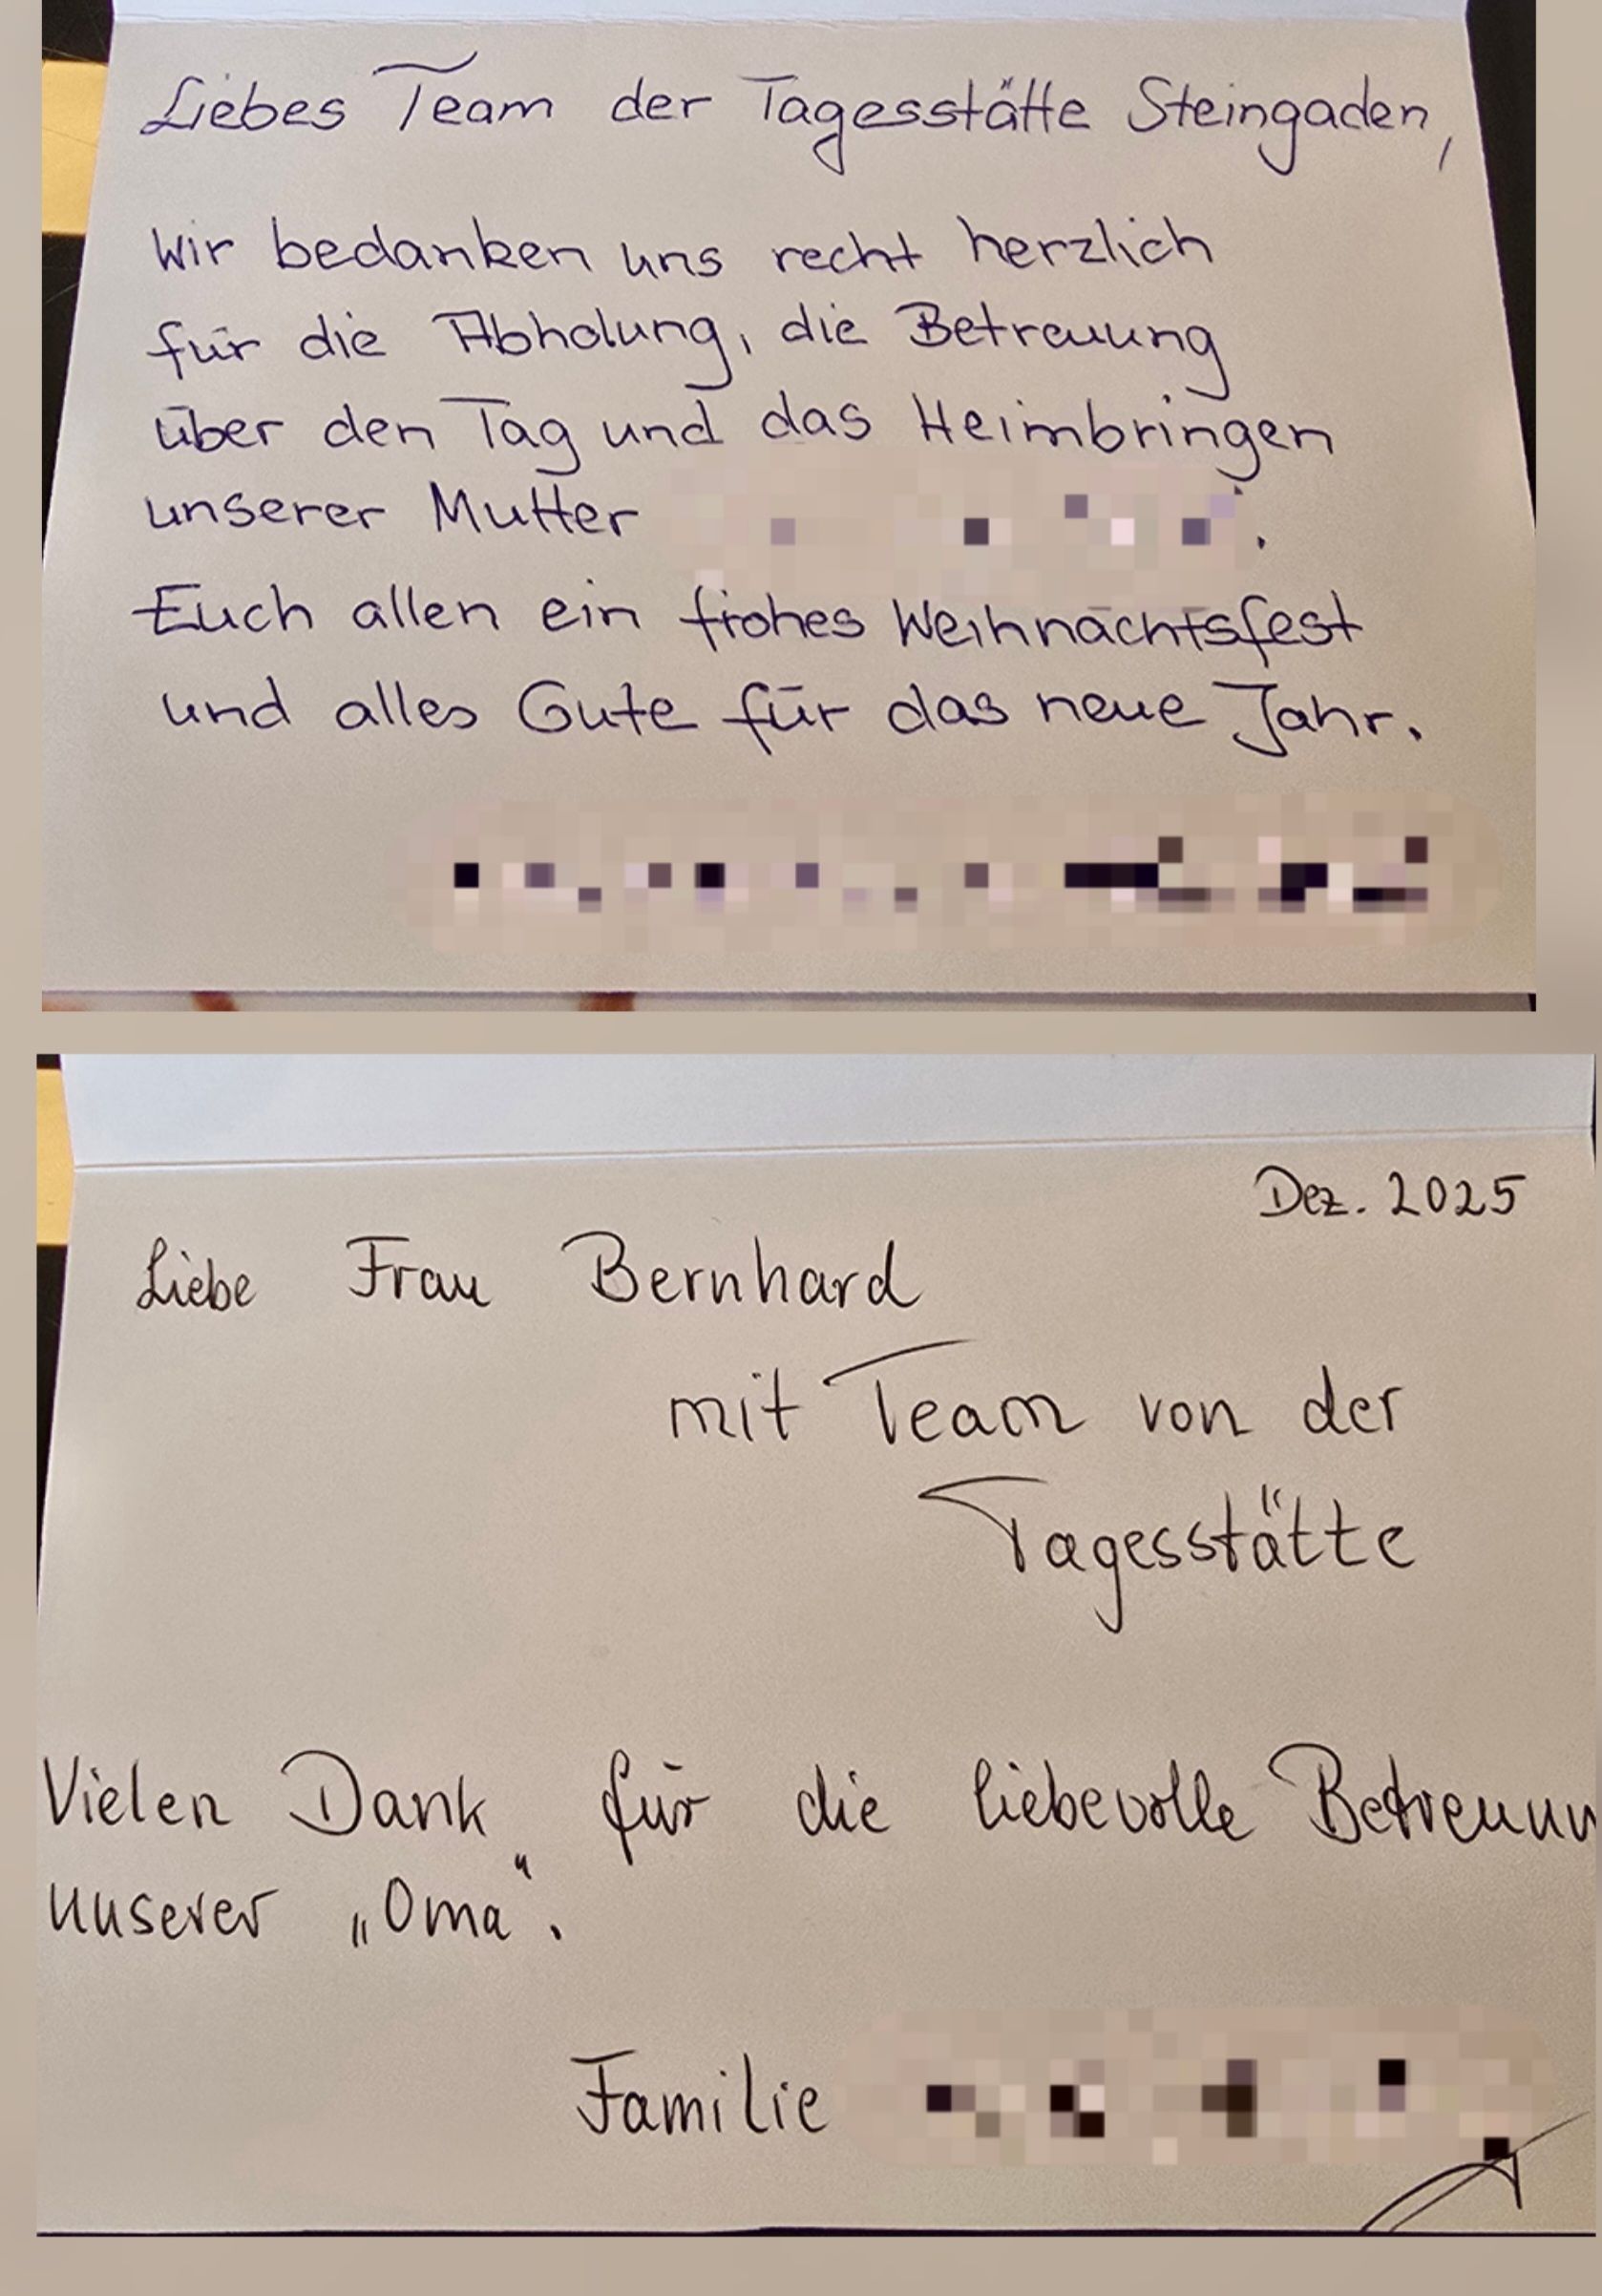 Liebes Team der Tagesstätte Steingaden,
Wir bedanken uns recht herzlich
für die Abholung, die Betreuung
über den Tag und das Heimbringen
unserer Mutter .
Euch allen ein frohes Weihnachtsfest
und alles Gute für das neue Jahr.
Dez. 2025
Liebe Frau Bernhard
mit Team von der
Tagesstätte
Vielen Dank für die liebevolle Betreuun
unserer „Oma“.
Familie